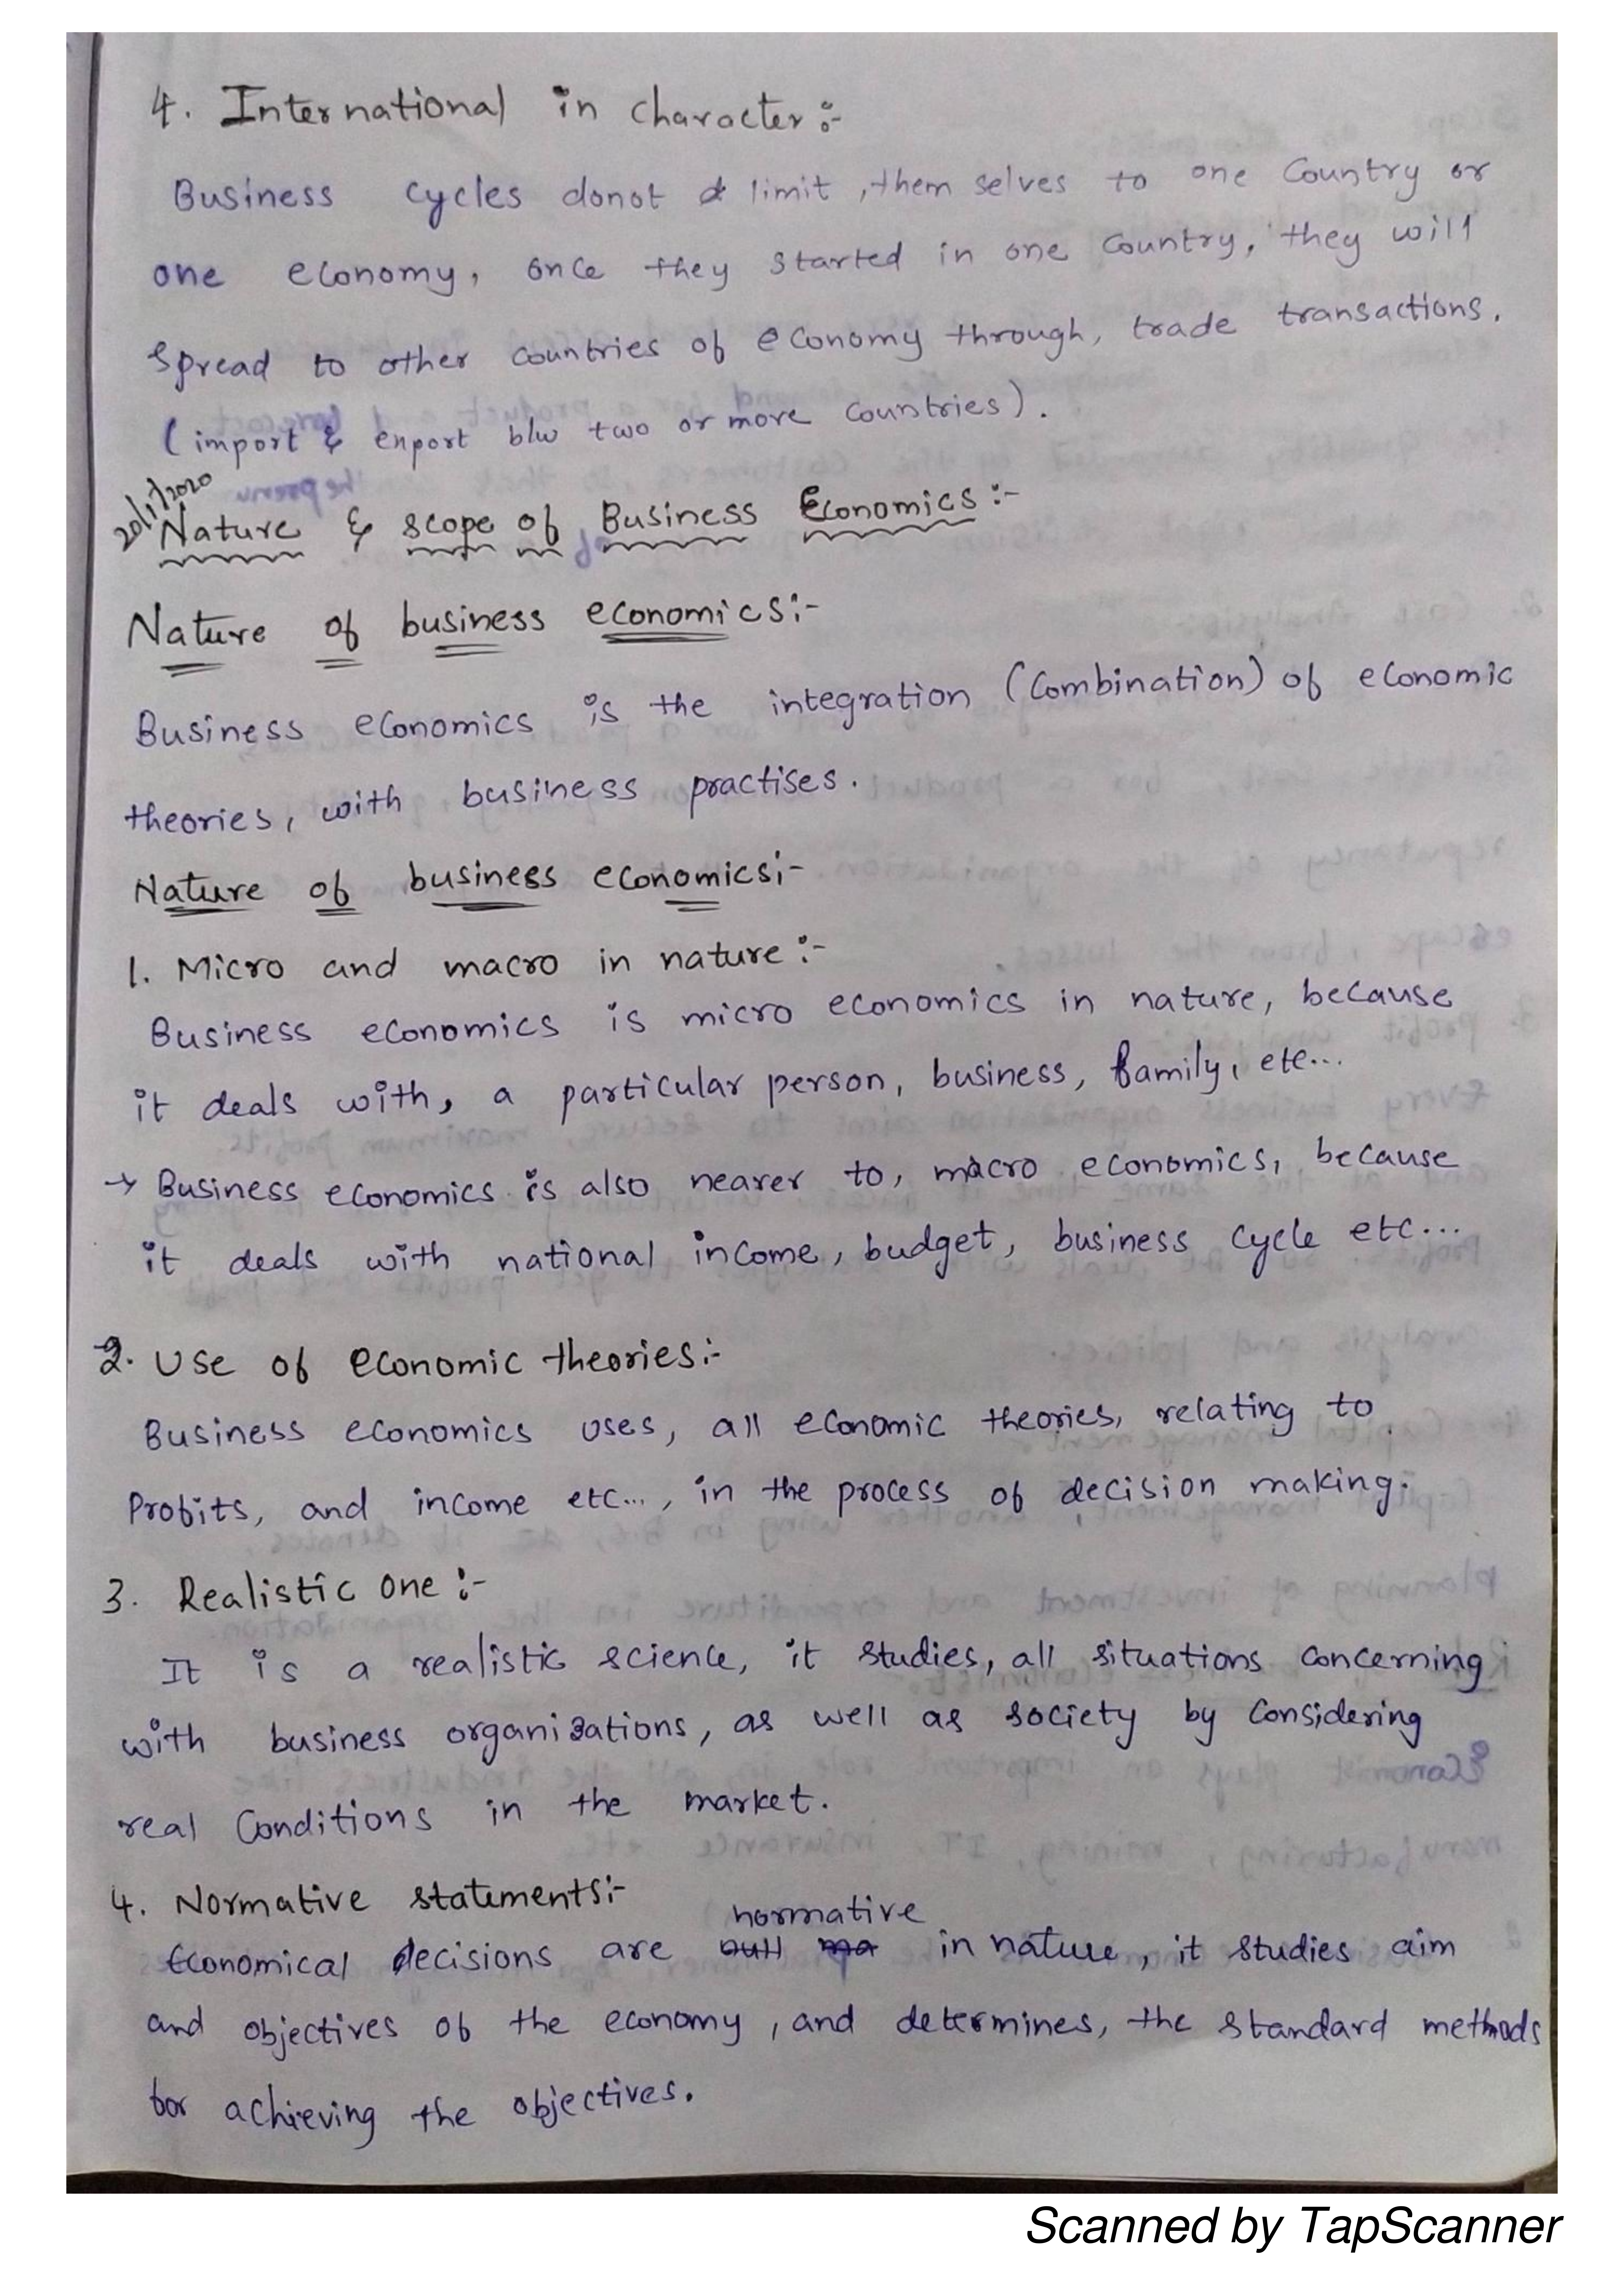 4. International in character:-
Business cycles donot limit, them selves to one Country or
one economy, once they started in one country, they will
spread to other countries of economy through, trade transactions.
(import & enport b/w two or more countries).
20/1/2020
Nature & scope of Business Economics:-
Nature of business economics:-
Business economics is the integration (Combination) of economic
theories, with business practises.
Nature of business economics:-
1. Micro and macro in nature:-
Business economics is micro economics in nature, because
it deals with, a particular person, business, family, etc...
→ Business economics is also nearer to, macro economics, because
it deals with national income, budget, business cycle etc...
2. Use of economic theories:-
Business economics uses, all economic theories, relating to
Profits, and income etc..., in the process of decision making.
3. Realistic one:-
It is a realistic science, it studies, all situations concerning
with business organizations, as well as society by considering
real Conditions in the market.
4. Normative statements:-
normative
Economical decisions are in nature, it studies aim
and objectives of the economy, and determines, the standard methods
for achieving the objectives.
Scanned by TapScanner